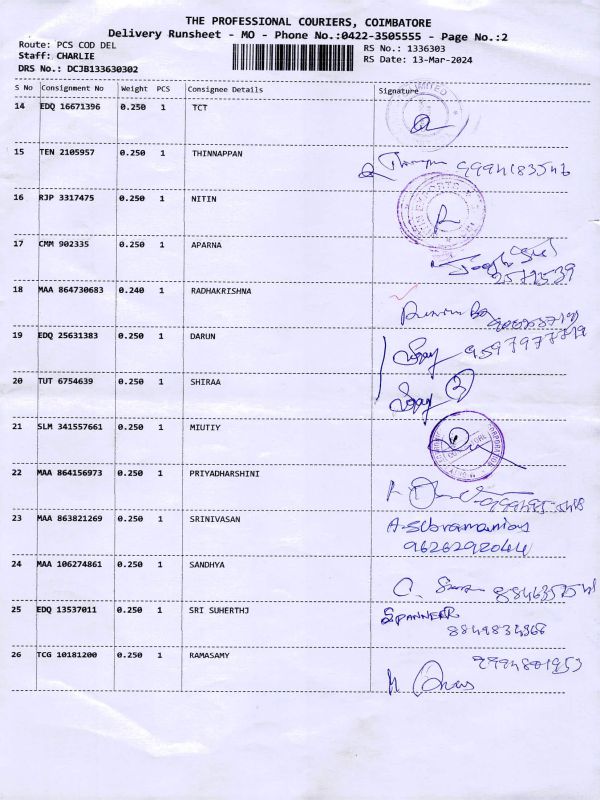 THE PROFESSIONAL COURIERS, COIMBATORE
Delivery Runsheet - MO - Phone No.:0422-3505555 - Page No.:2
Route: PCS COD DEL RS No.: 1336303
Staff: CHARLIE RS Date: 13-Mar-2024
DRS No.: DCJB133630302
S No Consignment No Weight PCS Consignee Details Signature
14 EDQ 16671396 0.250 1 TCT
15 TEN 2105957 0.250 1 THINNAPPAN
16 RJP 3317475 0.250 1 NITIN
17 CMM 902335 0.250 1 APARNA
18 MAA 864730683 0.240 1 RADHAKRISHNA
19 EDQ 25631383 0.250 1 DARUN
9597977719
20 TUT 6754639 0.250 1 SHIRAA
21 SLM 341557661 0.250 1 MIUTIY
22 MAA 864156973 0.250 1 PRIYADHARSHINI
23 MAA 863821269 0.250 1 SRINIVASAN
A-Sibramanian
9626292044
24 MAA 106274861 0.250 1 SANDHYA
25 EDQ 13537011 0.250 1 SRI SUHERTHJ
8849834366
26 TCG 10181200 0.250 1 RAMASAMY
9994801953